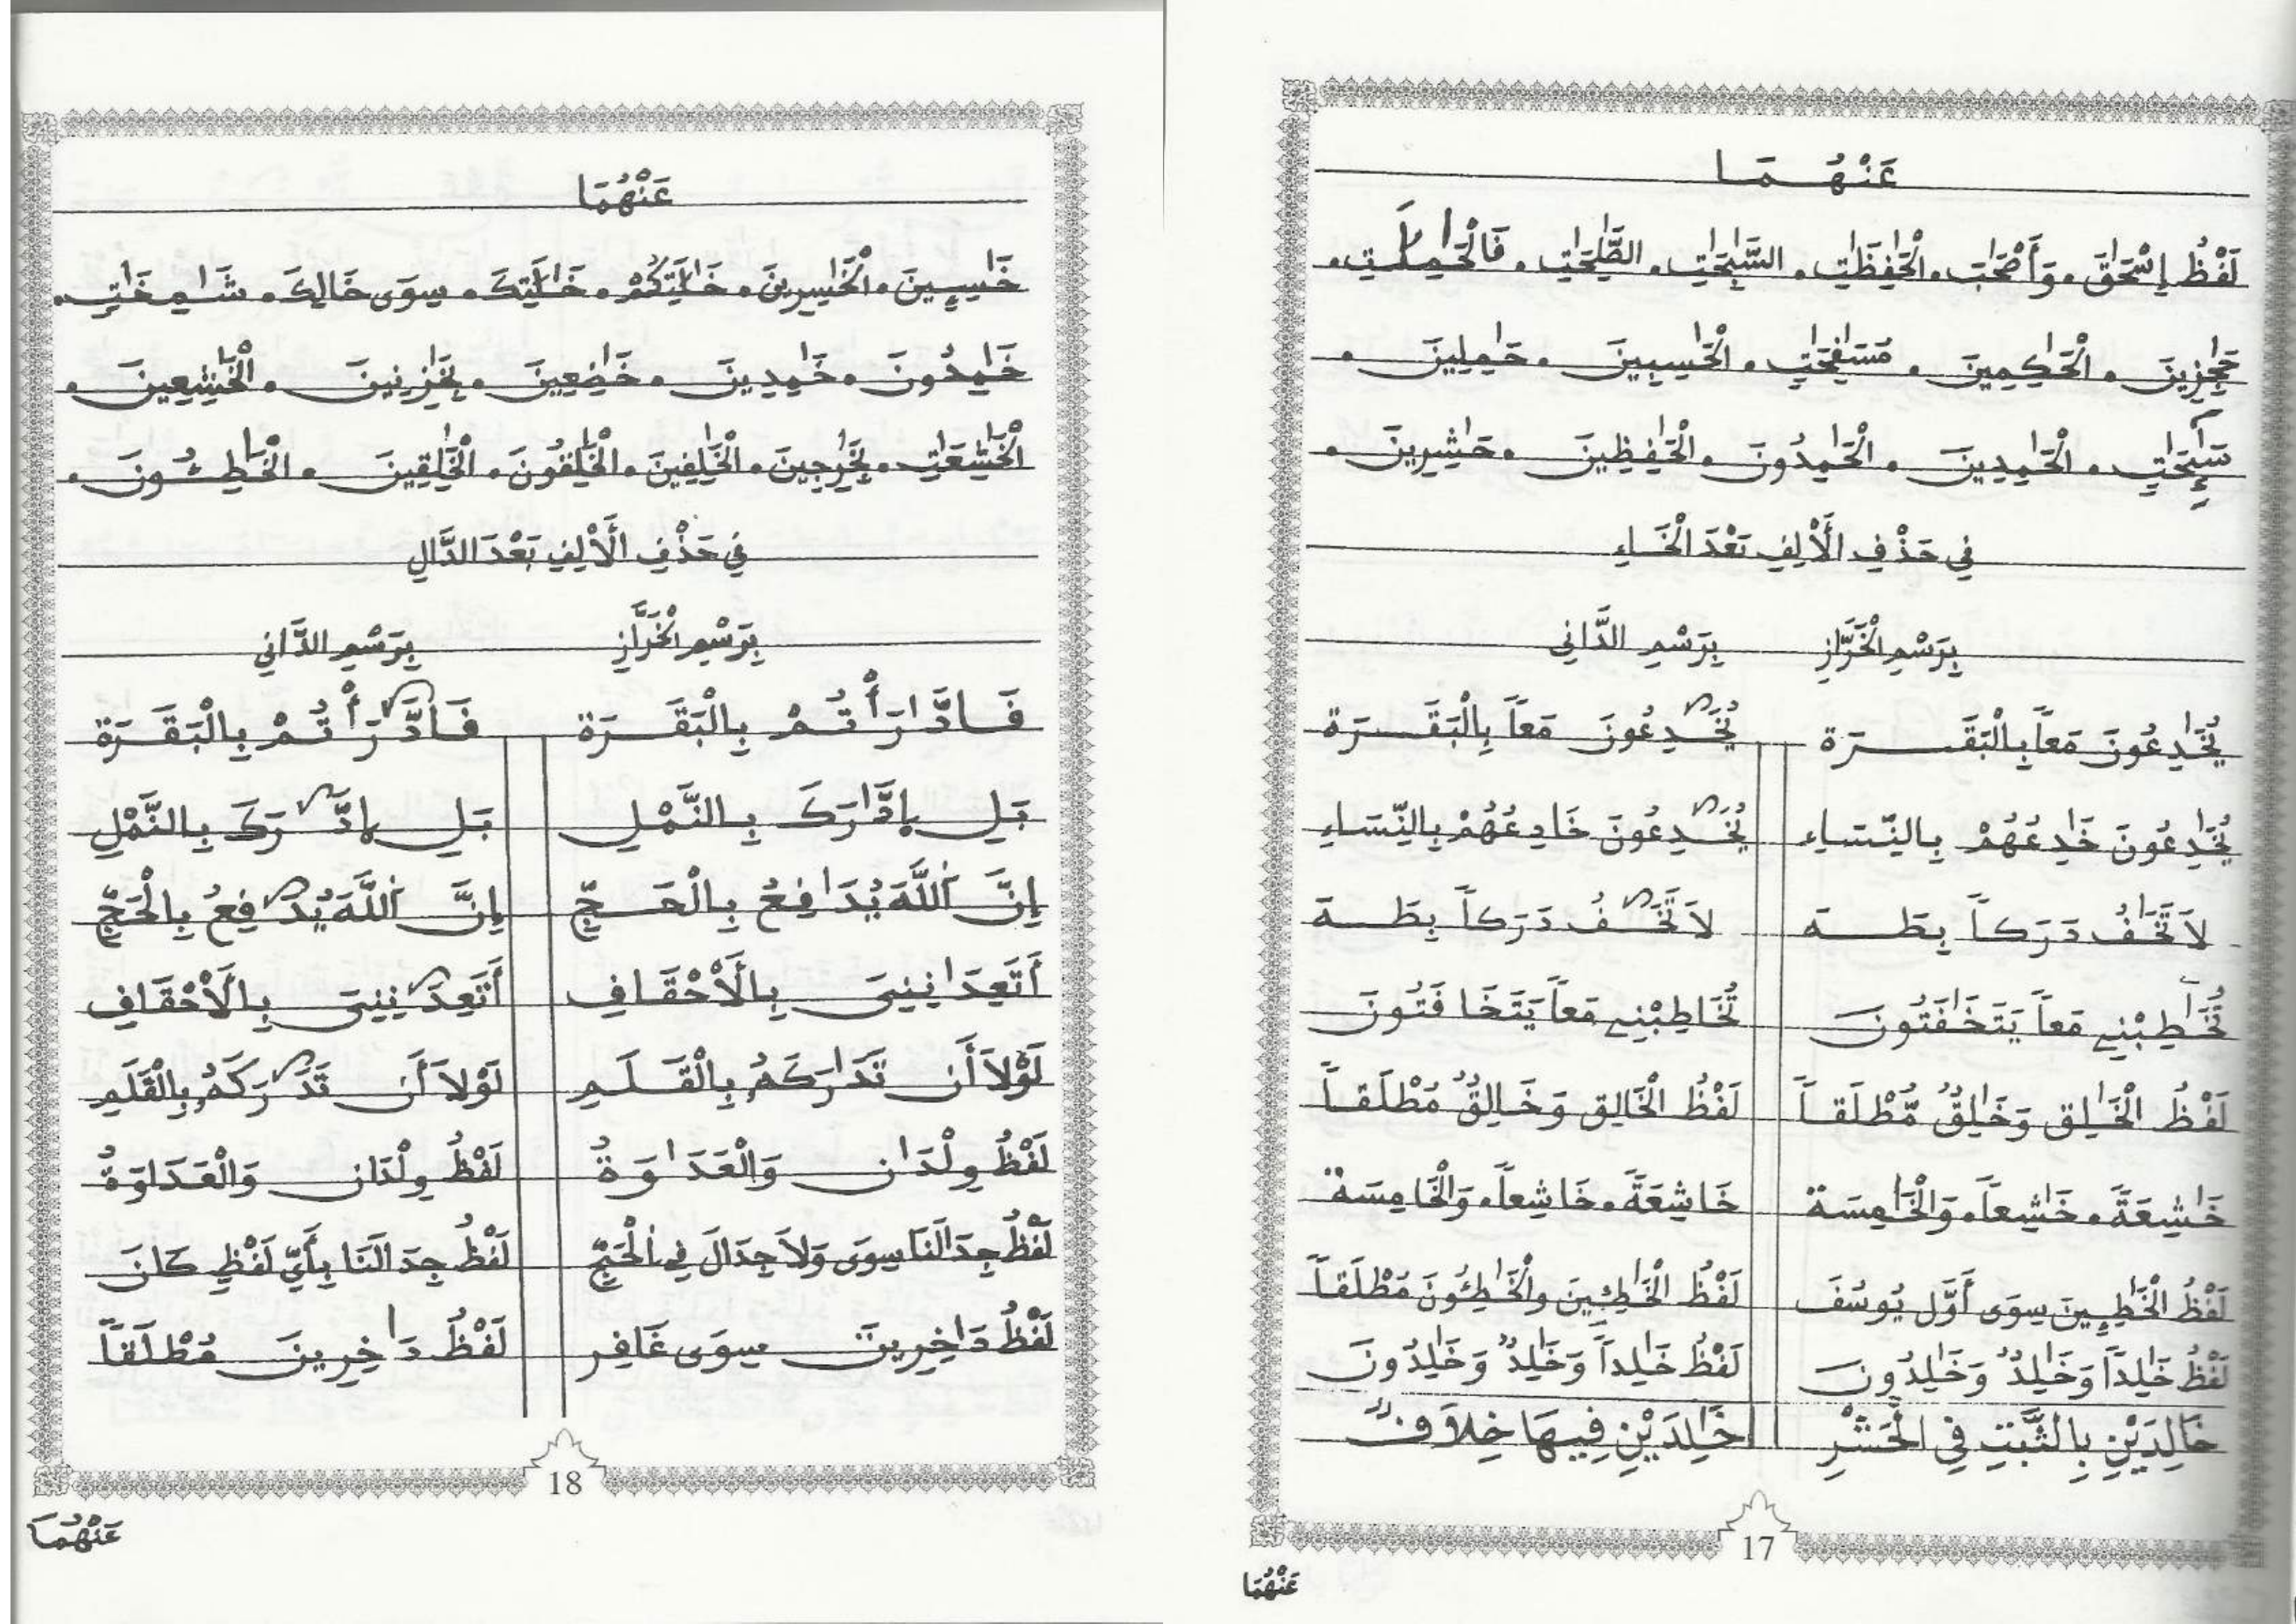 عَنْهُمَا
لَفْظُ إِسْحَٰقَ . وَأَصْحَٰبَ . الْحَٰفِظَٰتِ . السَّٰبِحَٰتِ . الصَّٰلِحَٰتِ . فَالْحَٰمِلَٰتِ .
حَٰجِزِينَ . الْحَٰكِمِينَ . مُسَٰفِحَٰتٍ . الْحَٰسِبِينَ . حَٰمِلِينَ .
سَٰٓئِحَٰتٍ . الْحَٰمِدِينَ . الْحَٰمِدُونَ . الْحَٰفِظِينَ . حَٰشِرِينَ .
فِي حَذْفِ الْأَلِفِ بَعْدَ الْخَاءِ
بِرَسْمِ الْخَرَّازِ بِرَسْمِ الدَّانِي
يُخَٰدِعُونَ مَعاً بِالْبَقَرَة يُخَٰدِعُونَ مَعاً بِالْبَقَرَة
يُخَٰدِعُونَ خَٰدِعُهُمْ بِالنِّسَاءِ يُخَٰدِعُونَ خَادِعُهُمْ بِالنِّسَاءِ
لاَ تَخَٰفُ دَرَكاً بِطَهَ لاَ تَخَٰفُ دَرَكاً بِطَهَ
تُخَٰطِبْنِي مَعاً يَتَخَٰفَتُونَ تُخَاطِبْنِي مَعاً يَتَخَافَتُونَ
لَفْظُ الْخَٰلِق وَخَٰلِقُ مُّطْلَقاً لَفْظُ الْخَالِق وَخَالِقُ مُطْلَقاً
خَٰشِعَةً . خَٰشِعاً . وَالْخَٰمِسَة خَاشِعَةً . خَاشِعاً . وَالْخَامِسَة
لَفْظُ الْخَٰطِـِٕينَ سِوَى أَوَّل يُوسُفَ لَفْظُ الْخَٰطِـِٕينَ والْخَٰطِـُٔونَ مُطْلَقاً
لَفْظُ خَٰلِداً وَخَٰلِدٌ وَخَٰلِدُونَ لَفْظُ خَٰلِداً وَخَٰلِدٌ وَخَٰلِدُونَ
خَالِدَيْنِ بِالثَّبْتِ فِي الْحَشْرِ خَٰلِدَيْنِ فِيهَا خِلَافٌ
17
عَنْهُمَا
عَنْهُمَا
خَٰسِـِٕينَ . الْخَٰسِرِينَ . خَٰلَٰتِكُمْ . خَٰلَٰتِكَ . سِوَى خَالِكَ . شَٰمِخَٰتٍ .
خَٰمِدُونَ . خَٰمِدِينَ . خَٰضِعِينَ . بِخَٰزِنِينَ . الْخَٰشِعِينَ .
الْخَٰشِعَٰتِ . بِخَٰرِجِينَ . الْخَٰلِفِينَ . الْخَٰلِقُونَ . الْخَٰلِقِينَ . الْخَٰطِـُٔونَ .
فِي حَذْفِ الْأَلِفِ بَعْدَ الدَّالِ
بِرَسْمِ الْخَرَّازِ بِرَسْمِ الدَّانِي
فَادَّٰرَأْتُمْ بِالْبَقَرَة فَادَّٰرَأْتُمْ بِالْبَقَرَة
بَلِ اِدَّٰرَكَ بِالنَّمْلِ بَلِ اِدَّٰرَكَ بِالنَّمْلِ
إِنَّ اللَّهَ يُدَٰفِعُ بِالْحَجِّ إِنَّ اللَّهَ يُدَٰفِعُ بِالْحَجِّ
أَتَعِدَٰنِنِيَ بِالْأَحْقَافِ أَتَعِدَٰنِنِيَ بِالْأَحْقَافِ
لَوْلاَ أَن تَدَٰرَكَهُ بِالْقَلَمِ لَوْلاَ أَن تَدَٰرَكَهُ بِالْقَلَمِ
لَفْظُ وِلْدَٰن وَالْعَدَٰوَةُ لَفْظُ وِلْدَان وَالْعَدَاوَةُ
لَفْظُ جِدَٰلَنَا سِوَى وَلاَ جِدَالَ فِي الْحَجِّ لَفْظُ جِدَالَنَا بِأَيِّ لَفْظٍ كَانَ
لَفْظُ دَٰخِرِينَ سِوَى غَافِر لَفْظُ دَٰخِرِينَ مُطْلَقاً
18
عَنْهُمَا